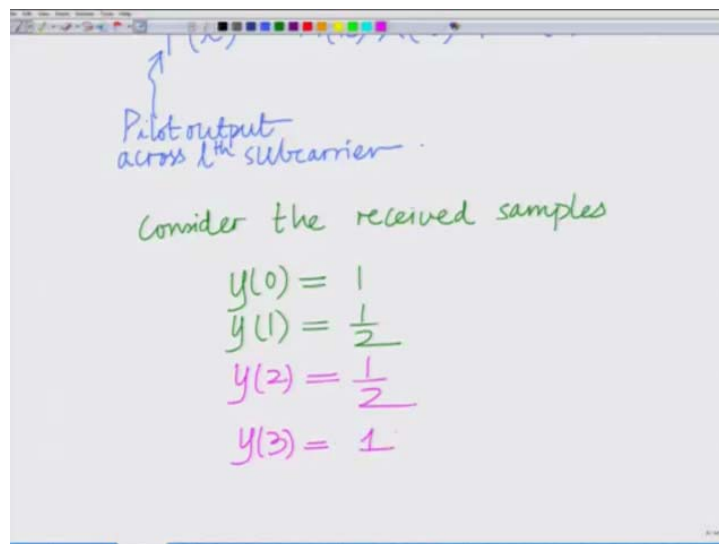 Pilot output
across lth subcarrier.
Consider the received samples
y(0) = 1
y(1) = 1/2
y(2) = 1/2
y(3) = 1